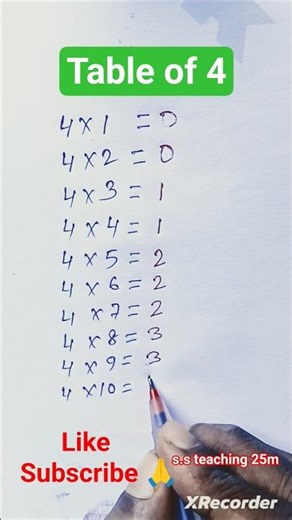 Table of 4
4 x 1 = 0
4 x 2 = 0
4 x 3 = 1
4 x 4 = 1
4 x 5 = 2
4 x 6 = 2
4 x 7 = 2
4 x 8 = 3
4 x 9 = 3
4 x 10 =
Like
Subscribe 🙏 s.s teaching 25m
XRecorder